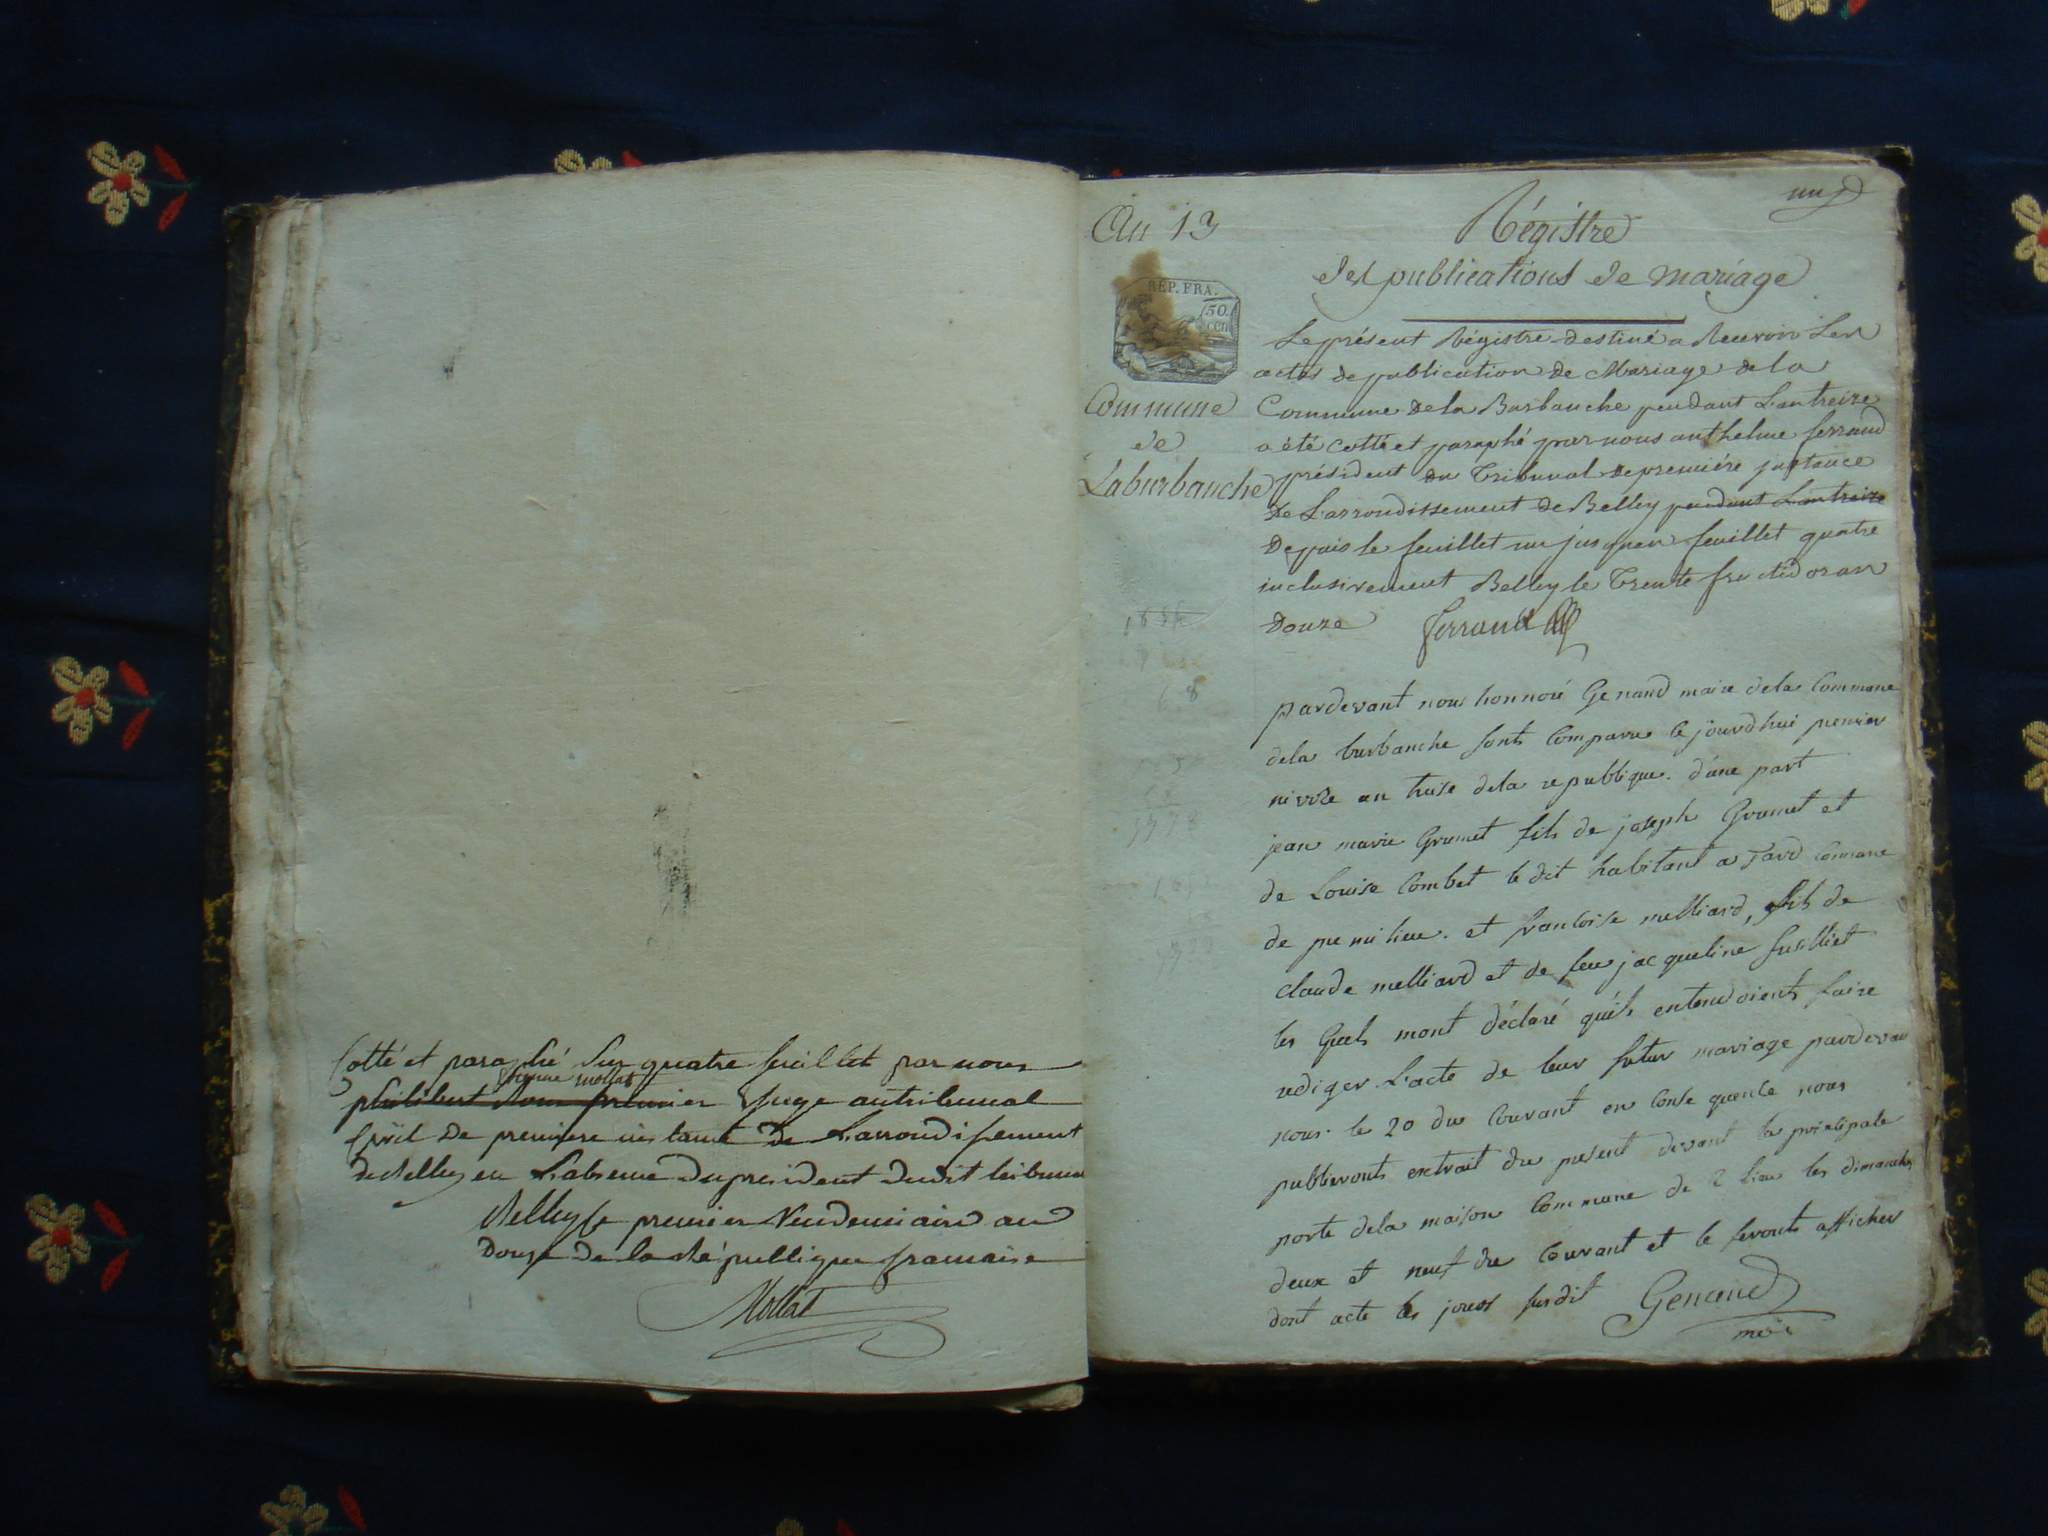 Cotté et paraphé sur quatre feuillet par nous
etienne mollat
philibert premier Juge au tribunal
Civil De premiere instance De L'arrondissement
de Belley en L'absence du president dudit tribunal
Belley le premier Vendemiaire an
Douze de la République francaise
Mollat
un
An 13
Régistre
des publications de mariage
REP. FRA.
50
cen
Commune
de
Laburbanche
Le présent Régistre destiné a Recevoir Les
actes de publication de Mariage de la
Commune De la Burbanche pendant L'an treize
a été cotté et paraphé par nous anthelme ferrand
président du Tribunal de première instance
De L'arrondissement de Belley pendant L'an treize
Depuis le feuillet un jusqu'au feuillet quatre
inclusivement Belley le Trente fructidor an
Douze ferrand
pardevant nous honnoré Genand maire dela Commune
dela burbanche sonts Comparu le jourd'hui premier
nivose an treise dela republique. d'une part
jean marie Grumet fils de joseph Grumet et
de Louise Combet le dit habitant a Tard Commune
de premilieu. et francoise melliard, fils de
claude melliard et de feu jacqueline fusilliet
les Quels mont déclaré qu'ils entendoients faire
rediger L'acte de leur futur mariage pardevan
nous le 20 du Courant en Conse quence nous
publieronts extrait du present devant la principale
porte dela maison Commune de 2 lieu les dimanches
deux et neuf du Courant et le feronts afficher
dont acte les jours susdit Genand